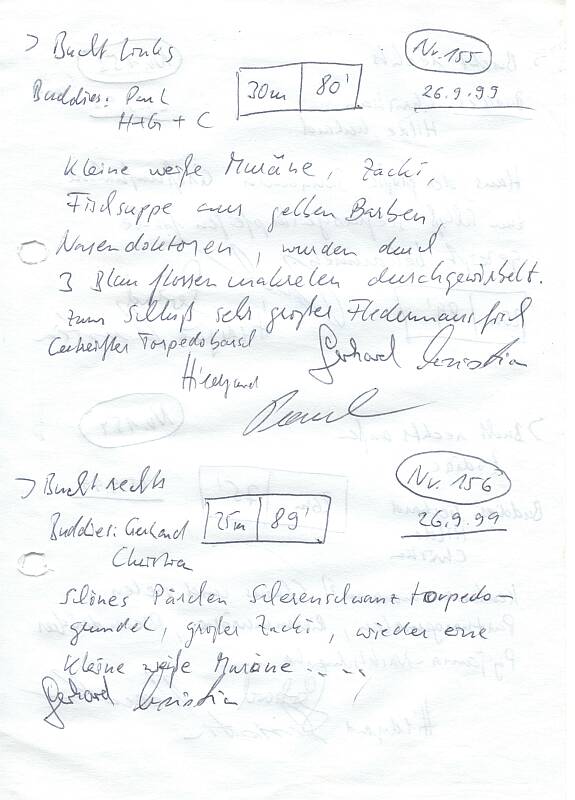 > Bucht links
Nr. 155
Buddies: Paul
30m 80'
26.9.99
H+G + C
Kleine weiße Muräne, Zacki,
Fischsuppe aus gelben Barben,
Nasendoktoren, wurden durch
3 Blauflossenmakrelen durchgewirbelt.
zum Schluß sehr großer Fledermausfisch
Torpedobarsch
Gerhard Christian
Hildegard
Paul
> Bucht rechts
Nr. 156
Buddies: Gerhard
25m 89'
26.9.99
Christian
schönes Pärchen Scherenschwanztorpedo-
grundel, großer Zacki, wieder eine
kleine weiße Muräne ....
Gerhard Christian